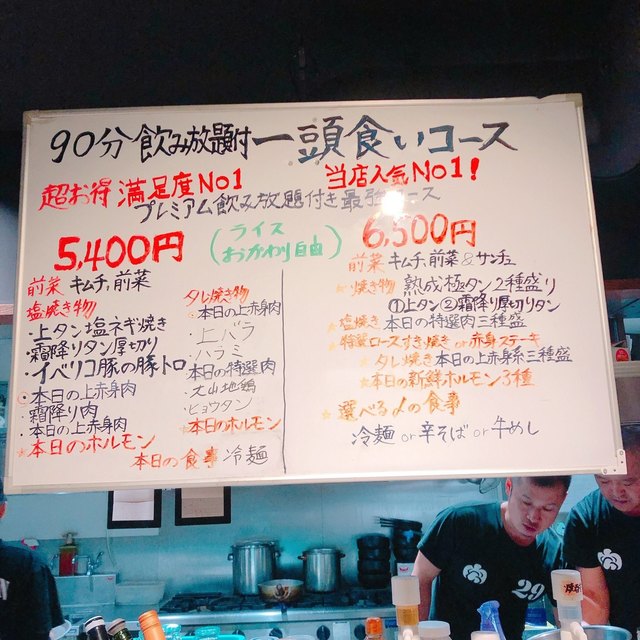 90分飲み放題付 一頭食いコース
超お得 満足度No1
当店人気No1!
プレミアム飲み放題付き最強コース
5,400円
(ライス
おかわり自由)
6,500円
前菜 キムチ,前菜
塩焼き物
・上タン塩ネギ焼き
・霜降りタン厚切り
・イベリコ豚の豚トロ
・本日の上赤身肉
霜降り肉
・本日の上赤身肉
☆本日のホルモン
タレ焼き物
本日の上赤身肉
・上バラ
・ハラミ
・本日の特選肉
・大山地鶏
・ヒョウタン
☆本日のホルモン
本日の食事 冷麺
前菜 キムチ,前菜&サンチュ
焼き物 熟成極タン2種盛り
①上タン②霜降り厚切りタン
塩焼き 本日の特選肉三種盛
特製ロースすき焼き or 赤身ステーキ
タレ焼き 本日の上赤身系三種盛
☆本日の新鮮ホルモン3種
☆選べる〆の食事
冷麺 or 辛そば or 牛めし
29